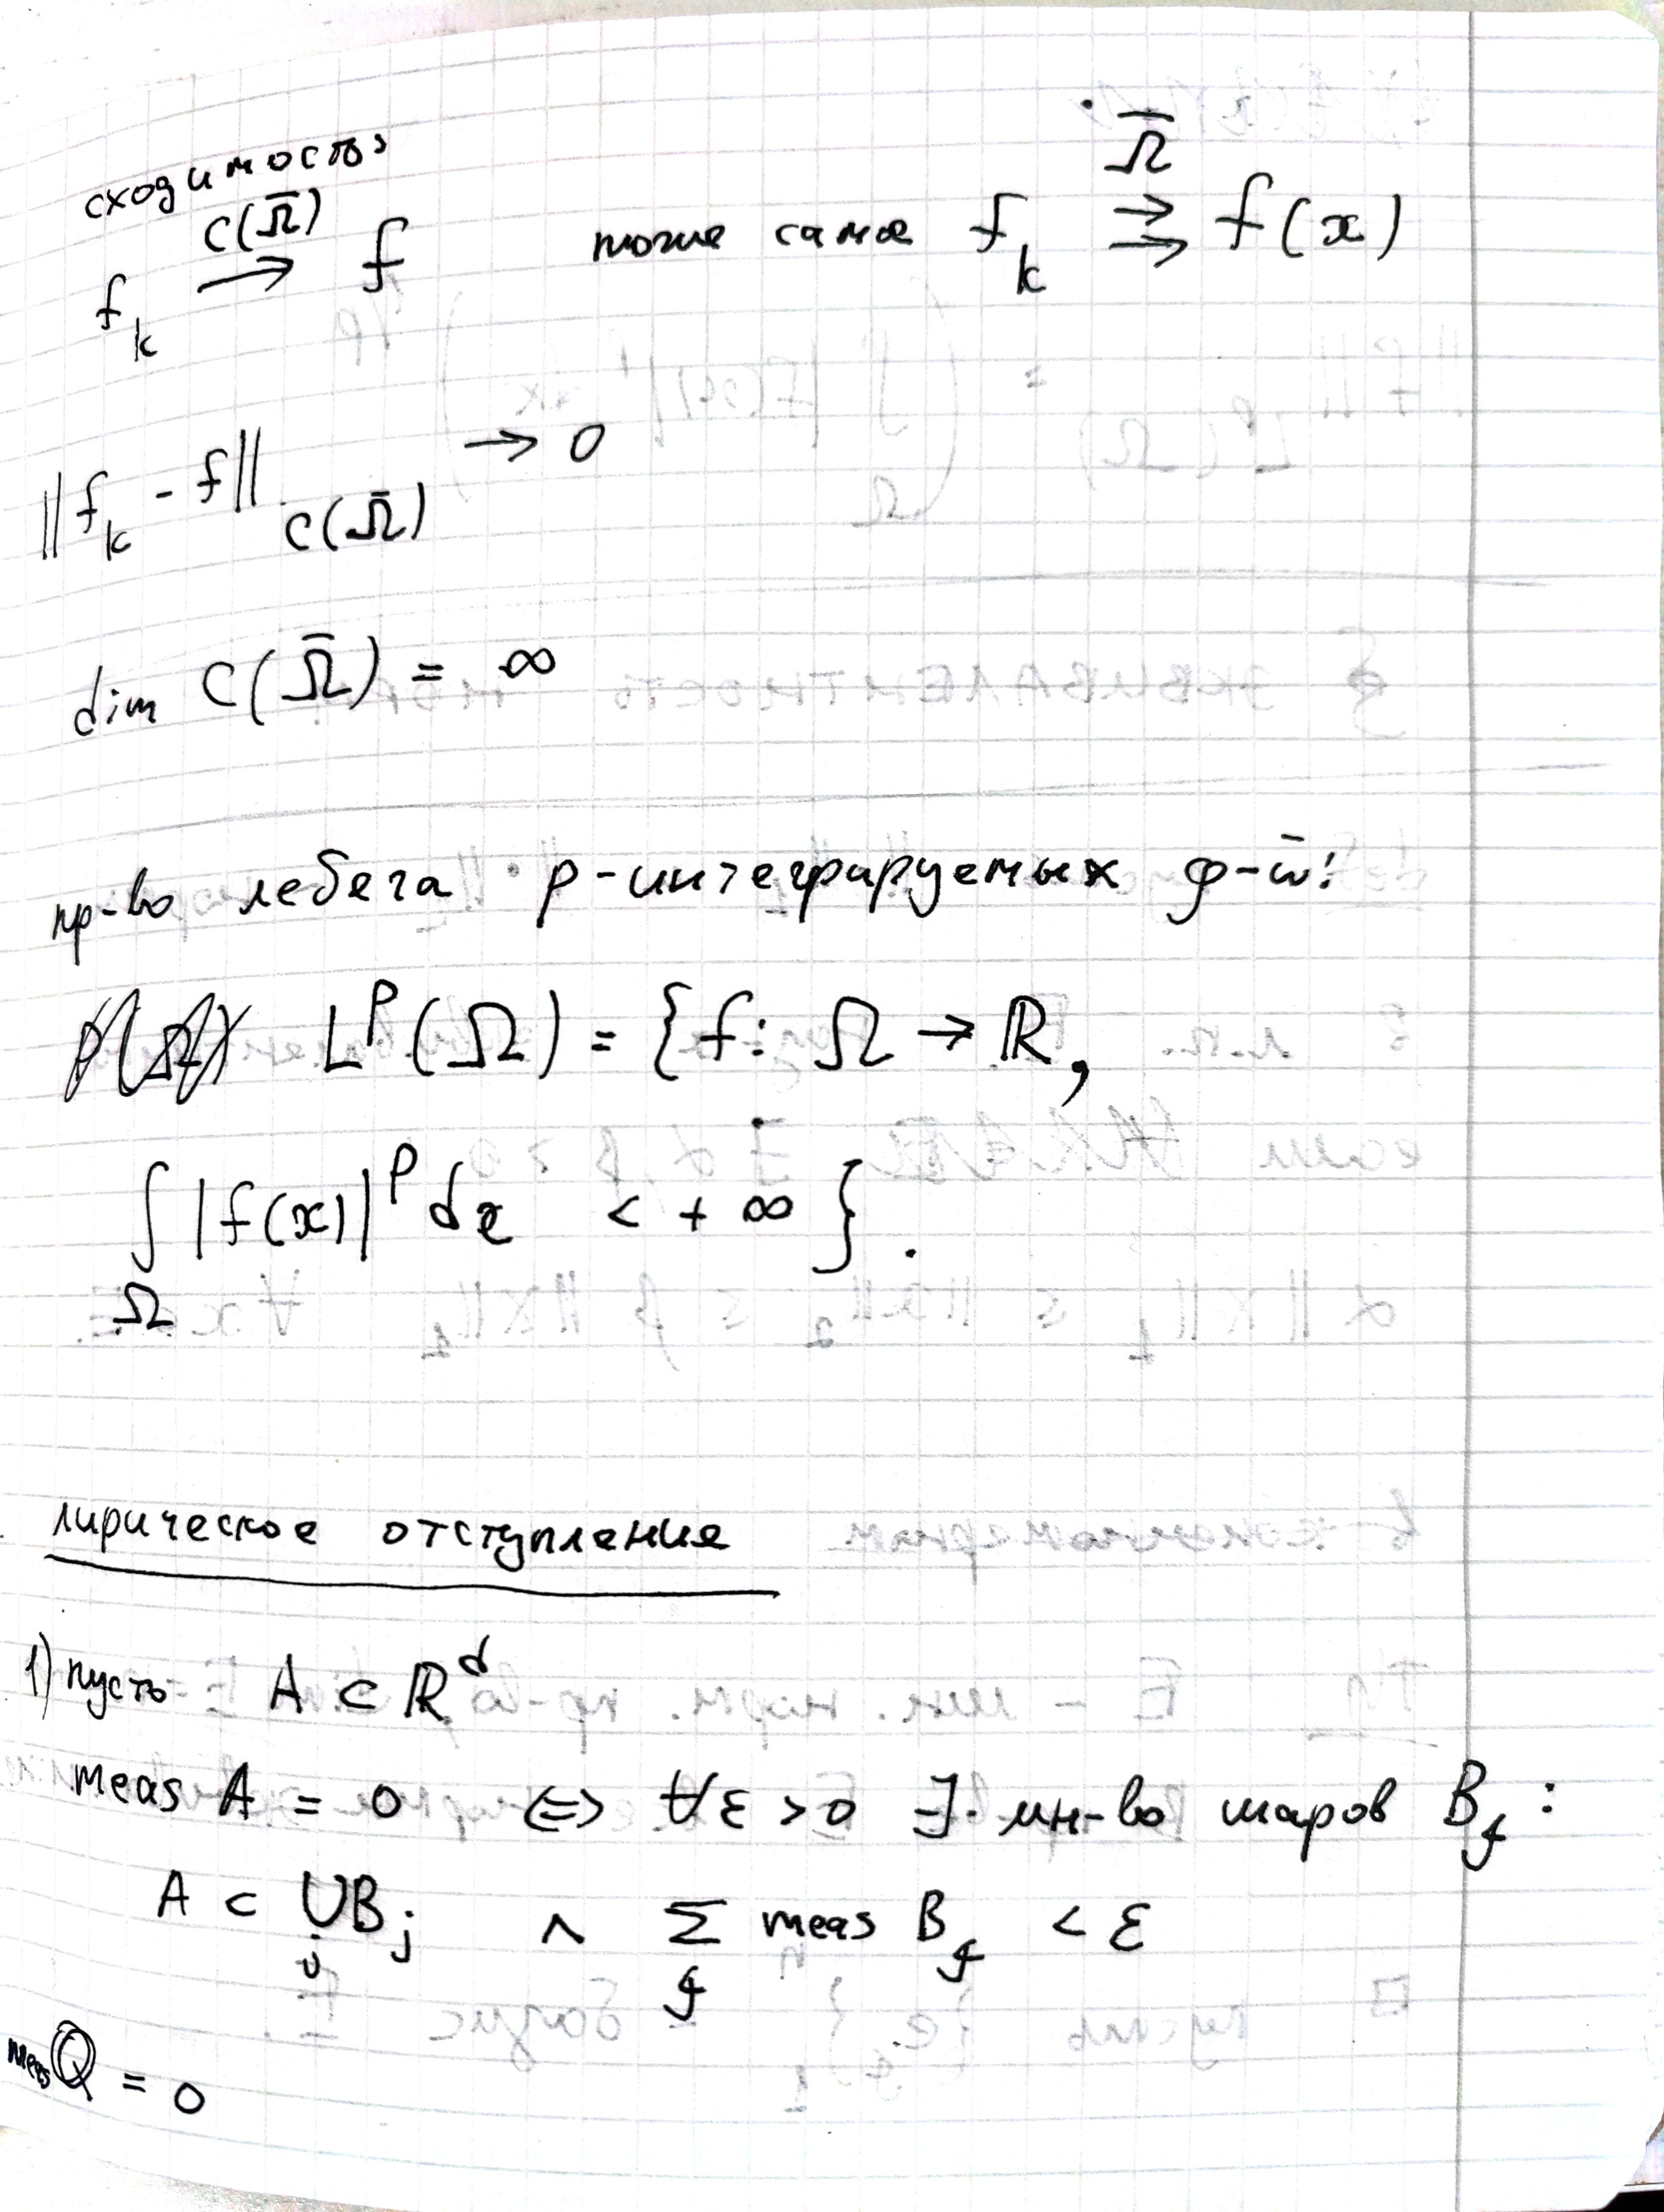 сходимость
f_k \xrightarrow{C(\overline{Ω})} f тоже самое f_k \overset{\overline{Ω}}{⇉} f(x)
||f_k - f||_{C(\overline{Ω})} → 0
dim C(\overline{Ω}) = ∞
пр-во лебега p-интегрируемых ф-й:
L^p(Ω) = {f: Ω → ℝ,
∫_Ω |f(x)|^p dx < + ∞}.
лирическое отступление
1) пусть A ⊂ ℝ^d
meas A = 0 ⟺ ∀ε > 0 ∃ мн-во шаров B_j :
A ⊂ ∪_j B_j ∧ Σ_j meas B_j < ε
meas ℚ = 0